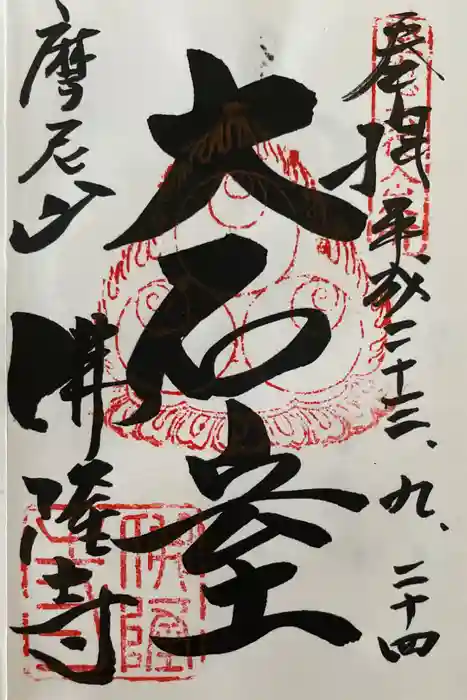 奉拝 平成二十三、九、二十四
大石室
摩尼山 佛隆寺